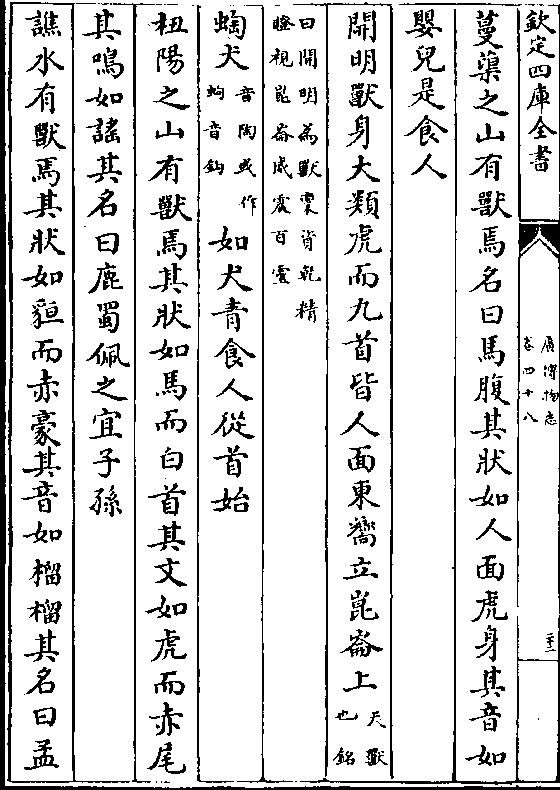 欽定四庫全書
廣博物志
卷四十八
二十二
蔓渠之山有獸焉名曰馬腹其狀如人面虎身其音如
嬰兒是食人
開明獸身大類虎而九首皆人面東嚮立崑崙上天獸也銘
曰開明為獸稟資乾精
瞪視崑崙威震百靈
蜪犬音陶或作蚼音鈎如犬青食人從首始
杻陽之山有獸焉其狀如馬而白首其文如虎而赤尾
其鳴如謠其名曰鹿蜀佩之宜子孫
譙水有獸焉其狀如貆而赤豪其音如榴榴其名曰孟